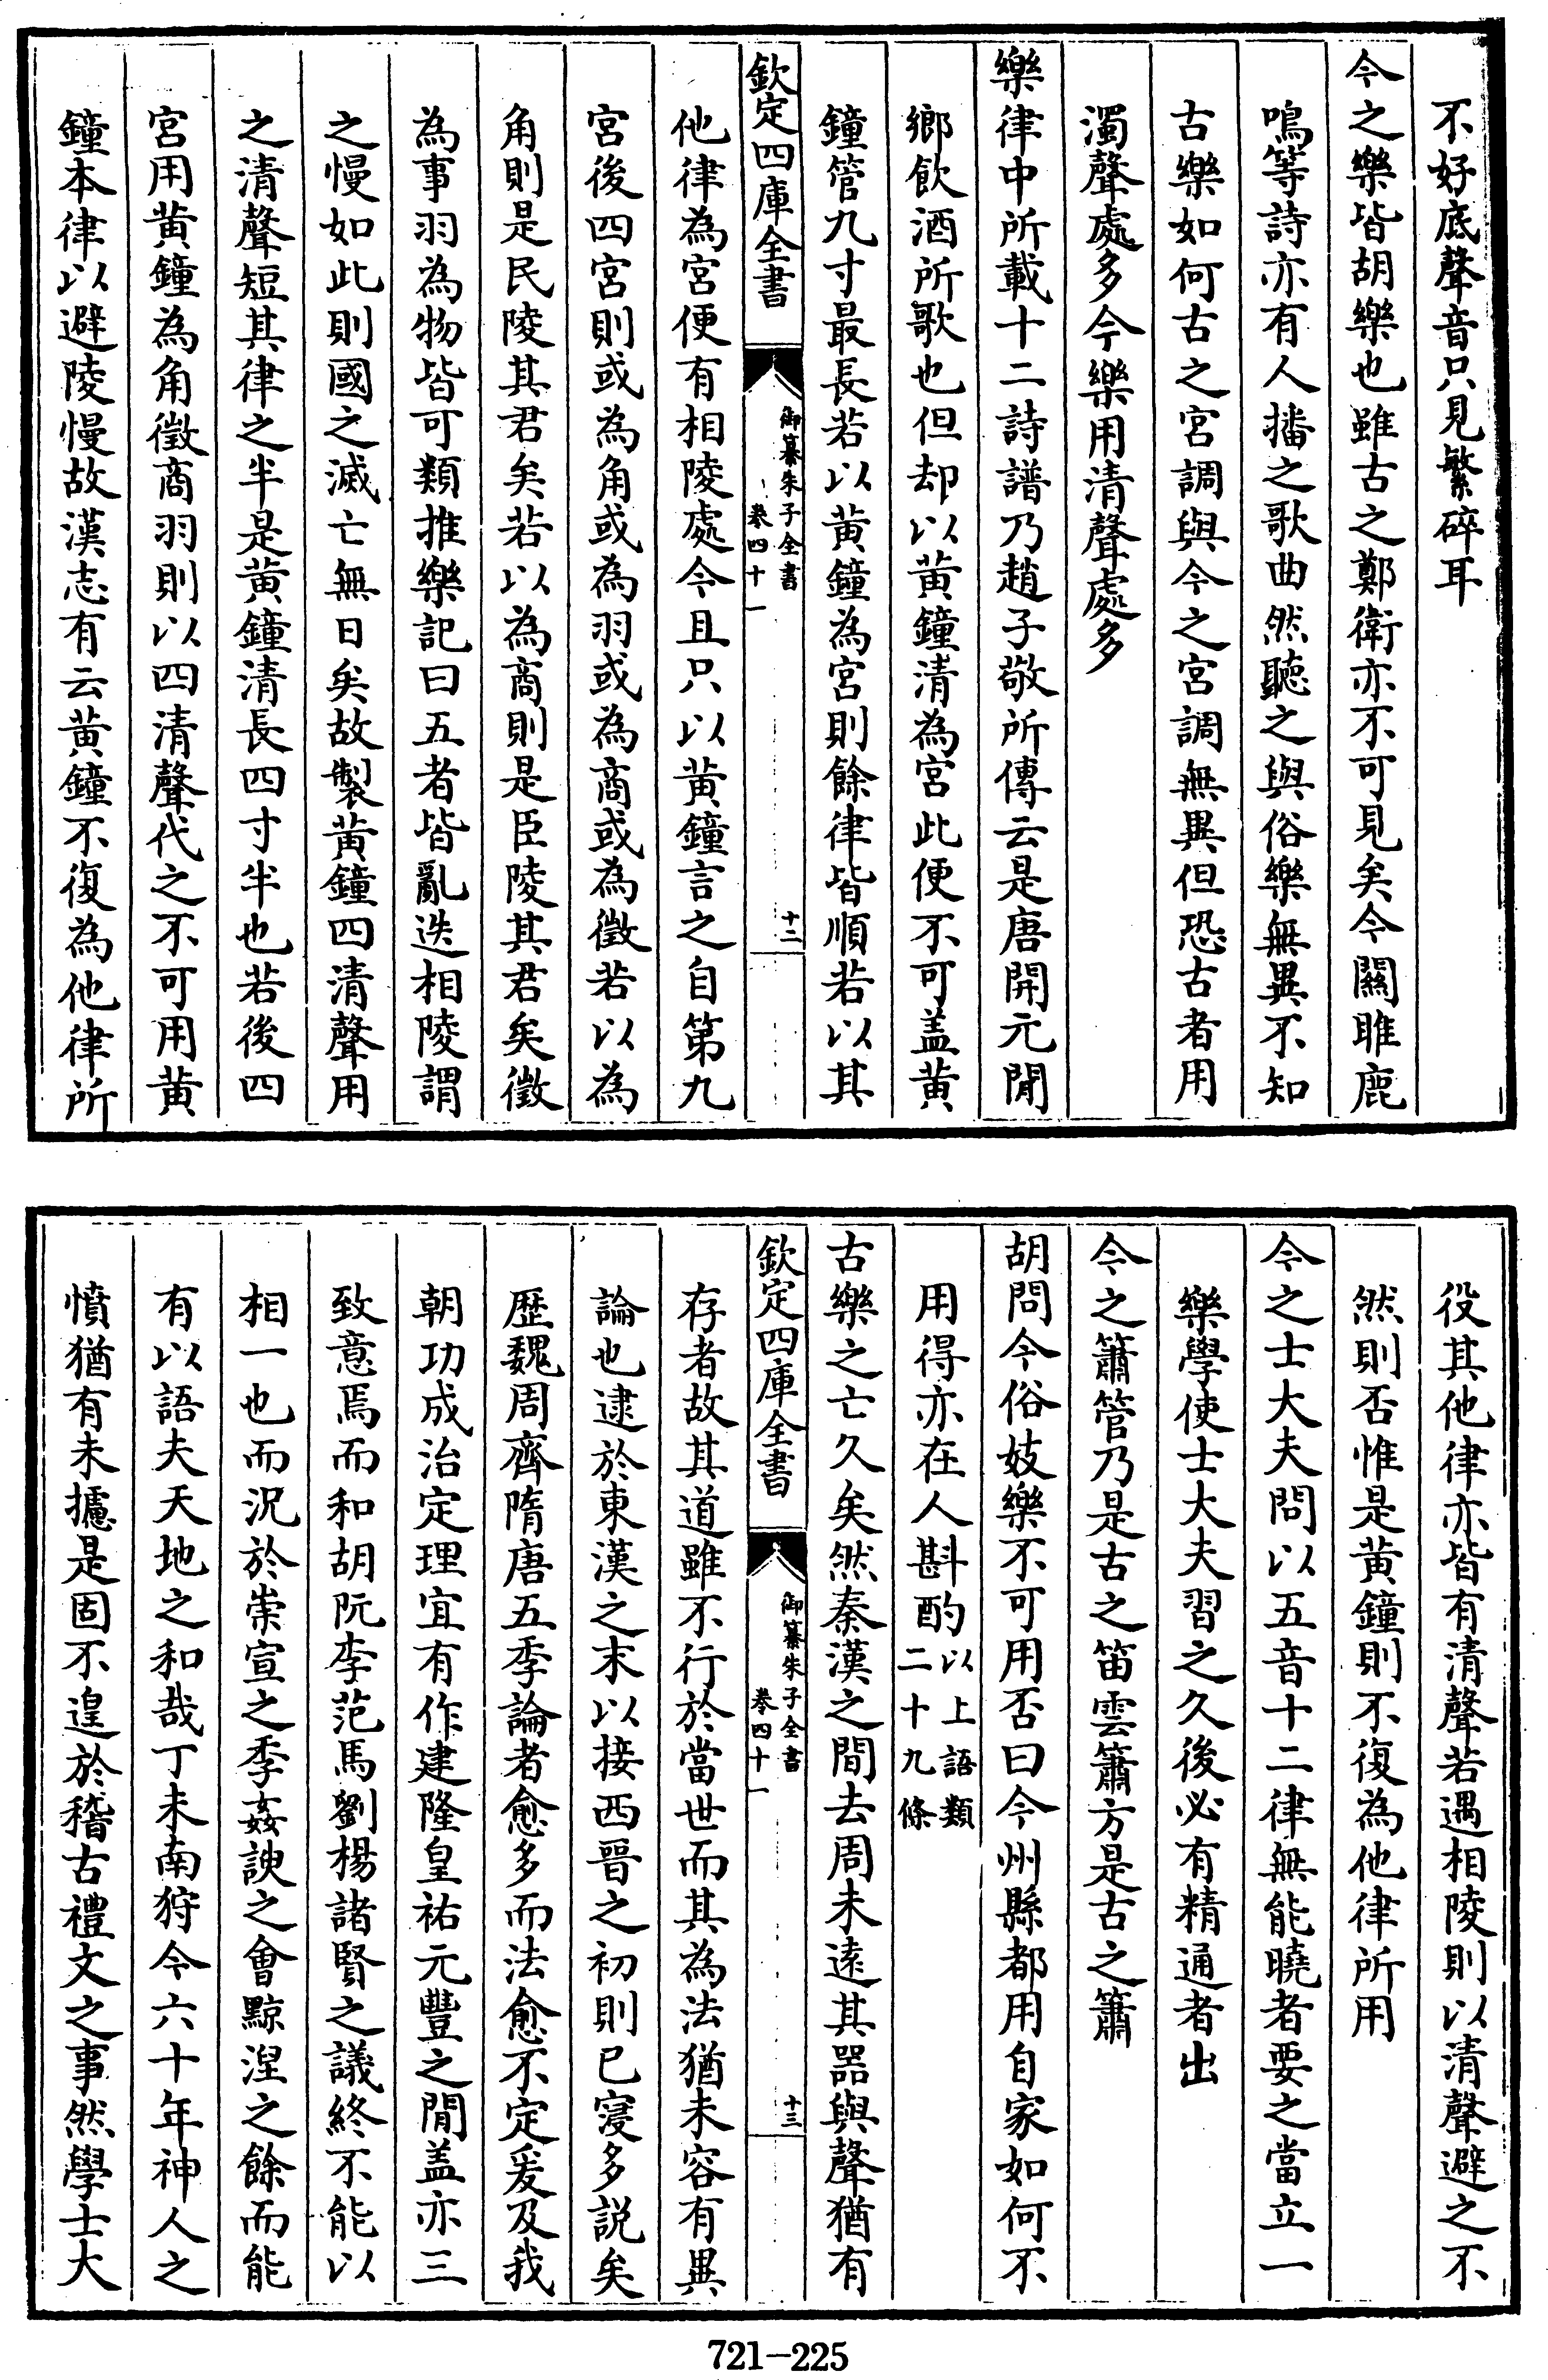 不好底聲音只見繁碎耳
今之樂皆胡樂也雖古之鄭衛亦不可見矣今關雎鹿
鳴等詩亦有人播之歌曲然聽之與俗樂無異不知
古樂如何古之宮調與今之宮調無異但恐古者用
濁聲處多今樂用清聲處多
樂律中所載十二詩譜乃趙子敬所傳云是唐開元閒
鄉飲酒所歌也但却以黃鐘清為宮此便不可盖黃
鐘管九寸最長若以黃鐘為宮則餘律皆順若以其
欽定四庫全書
御纂朱子全書
卷四十一
十二
他律為宮便有相陵處今且只以黃鐘言之自第九
宮後四宮則或為角或為羽或為商或為徵若以為
角則是民陵其君矣若以為商則是臣陵其君矣徵
為事羽為物皆可類推樂記曰五者皆亂迭相陵謂
之慢如此則國之滅亡無日矣故製黃鐘四清聲用
之清聲短其律之半是黃鐘清長四寸半也若後四
宮用黃鐘為角徵商羽則以四清聲代之不可用黃
鐘本律以避陵慢故漢志有云黃鐘不復為他律所
役其他律亦皆有清聲若遇相陵則以清聲避之不
然則否惟是黃鐘則不復為他律所用
今之士大夫問以五音十二律無能曉者要之當立一
樂學使士大夫習之久後必有精通者出
今之簫管乃是古之笛雲簫方是古之簫
胡問今俗妓樂不可用否曰今州縣都用自家如何不
用得亦在人斟酌以上語類
二十九條
古樂之亡久矣然秦漢之間去周未遠其器與聲猶有
欽定四庫全書
御纂朱子全書
卷四十一
十三
存者故其道雖不行於當世而其為法猶未容有異
論也逮於東漢之末以接西晉之初則已寖多説矣
歷魏周齊隋唐五季論者愈多而法愈不定爰及我
朝功成治定理宜有作建隆皇祐元豐之閒盖亦三
致意焉而和胡阮李范馬劉楊諸賢之議終不能以
相一也而況於崇宣之季姦諛之會黥涅之餘而能
有以語夫天地之和哉丁未南狩今六十年神人之
憤猶有未攄是固不遑於稽古禮文之事然學士大
721-225